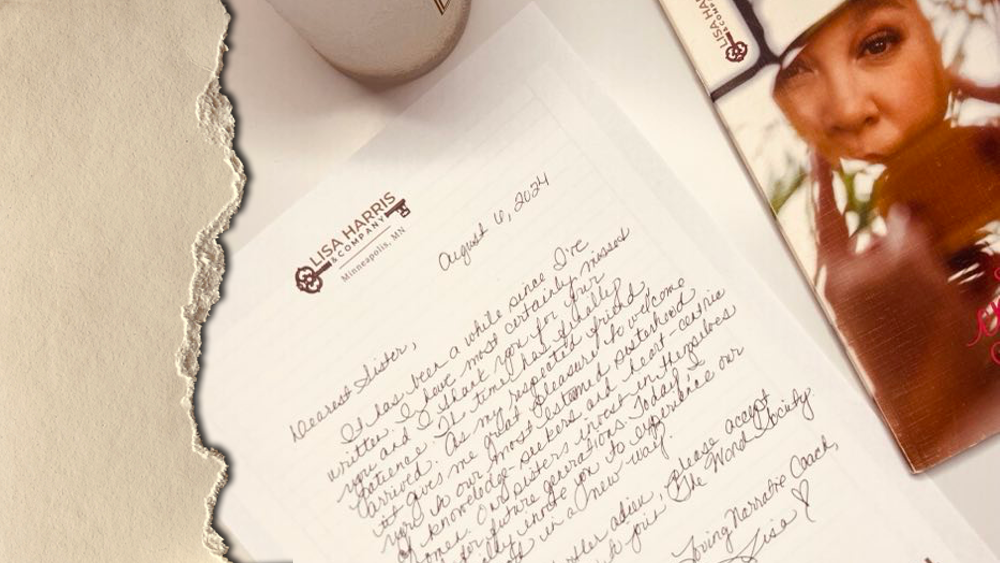 LISA HARRIS
& COMPANY
Minneapolis, MN
August 6, 2024
Dearest Sister,
It has been a while since I've
written. I have most certainly missed
you and I thank you for your
patience. The time has finally
arrived. As my respected friend,
it gives me great pleasure to welcome
you to our most esteemed sisterhood
of knowledge-seekers and heart-centric
women. Our sisters invest in themselves
for future generations. Today, I
invite you to experience our
in a new way.
further adieu, please accept
to join The Word Society
Loving Narrative Coach,
Lisa ♡
LISA HAR
& COMPAN